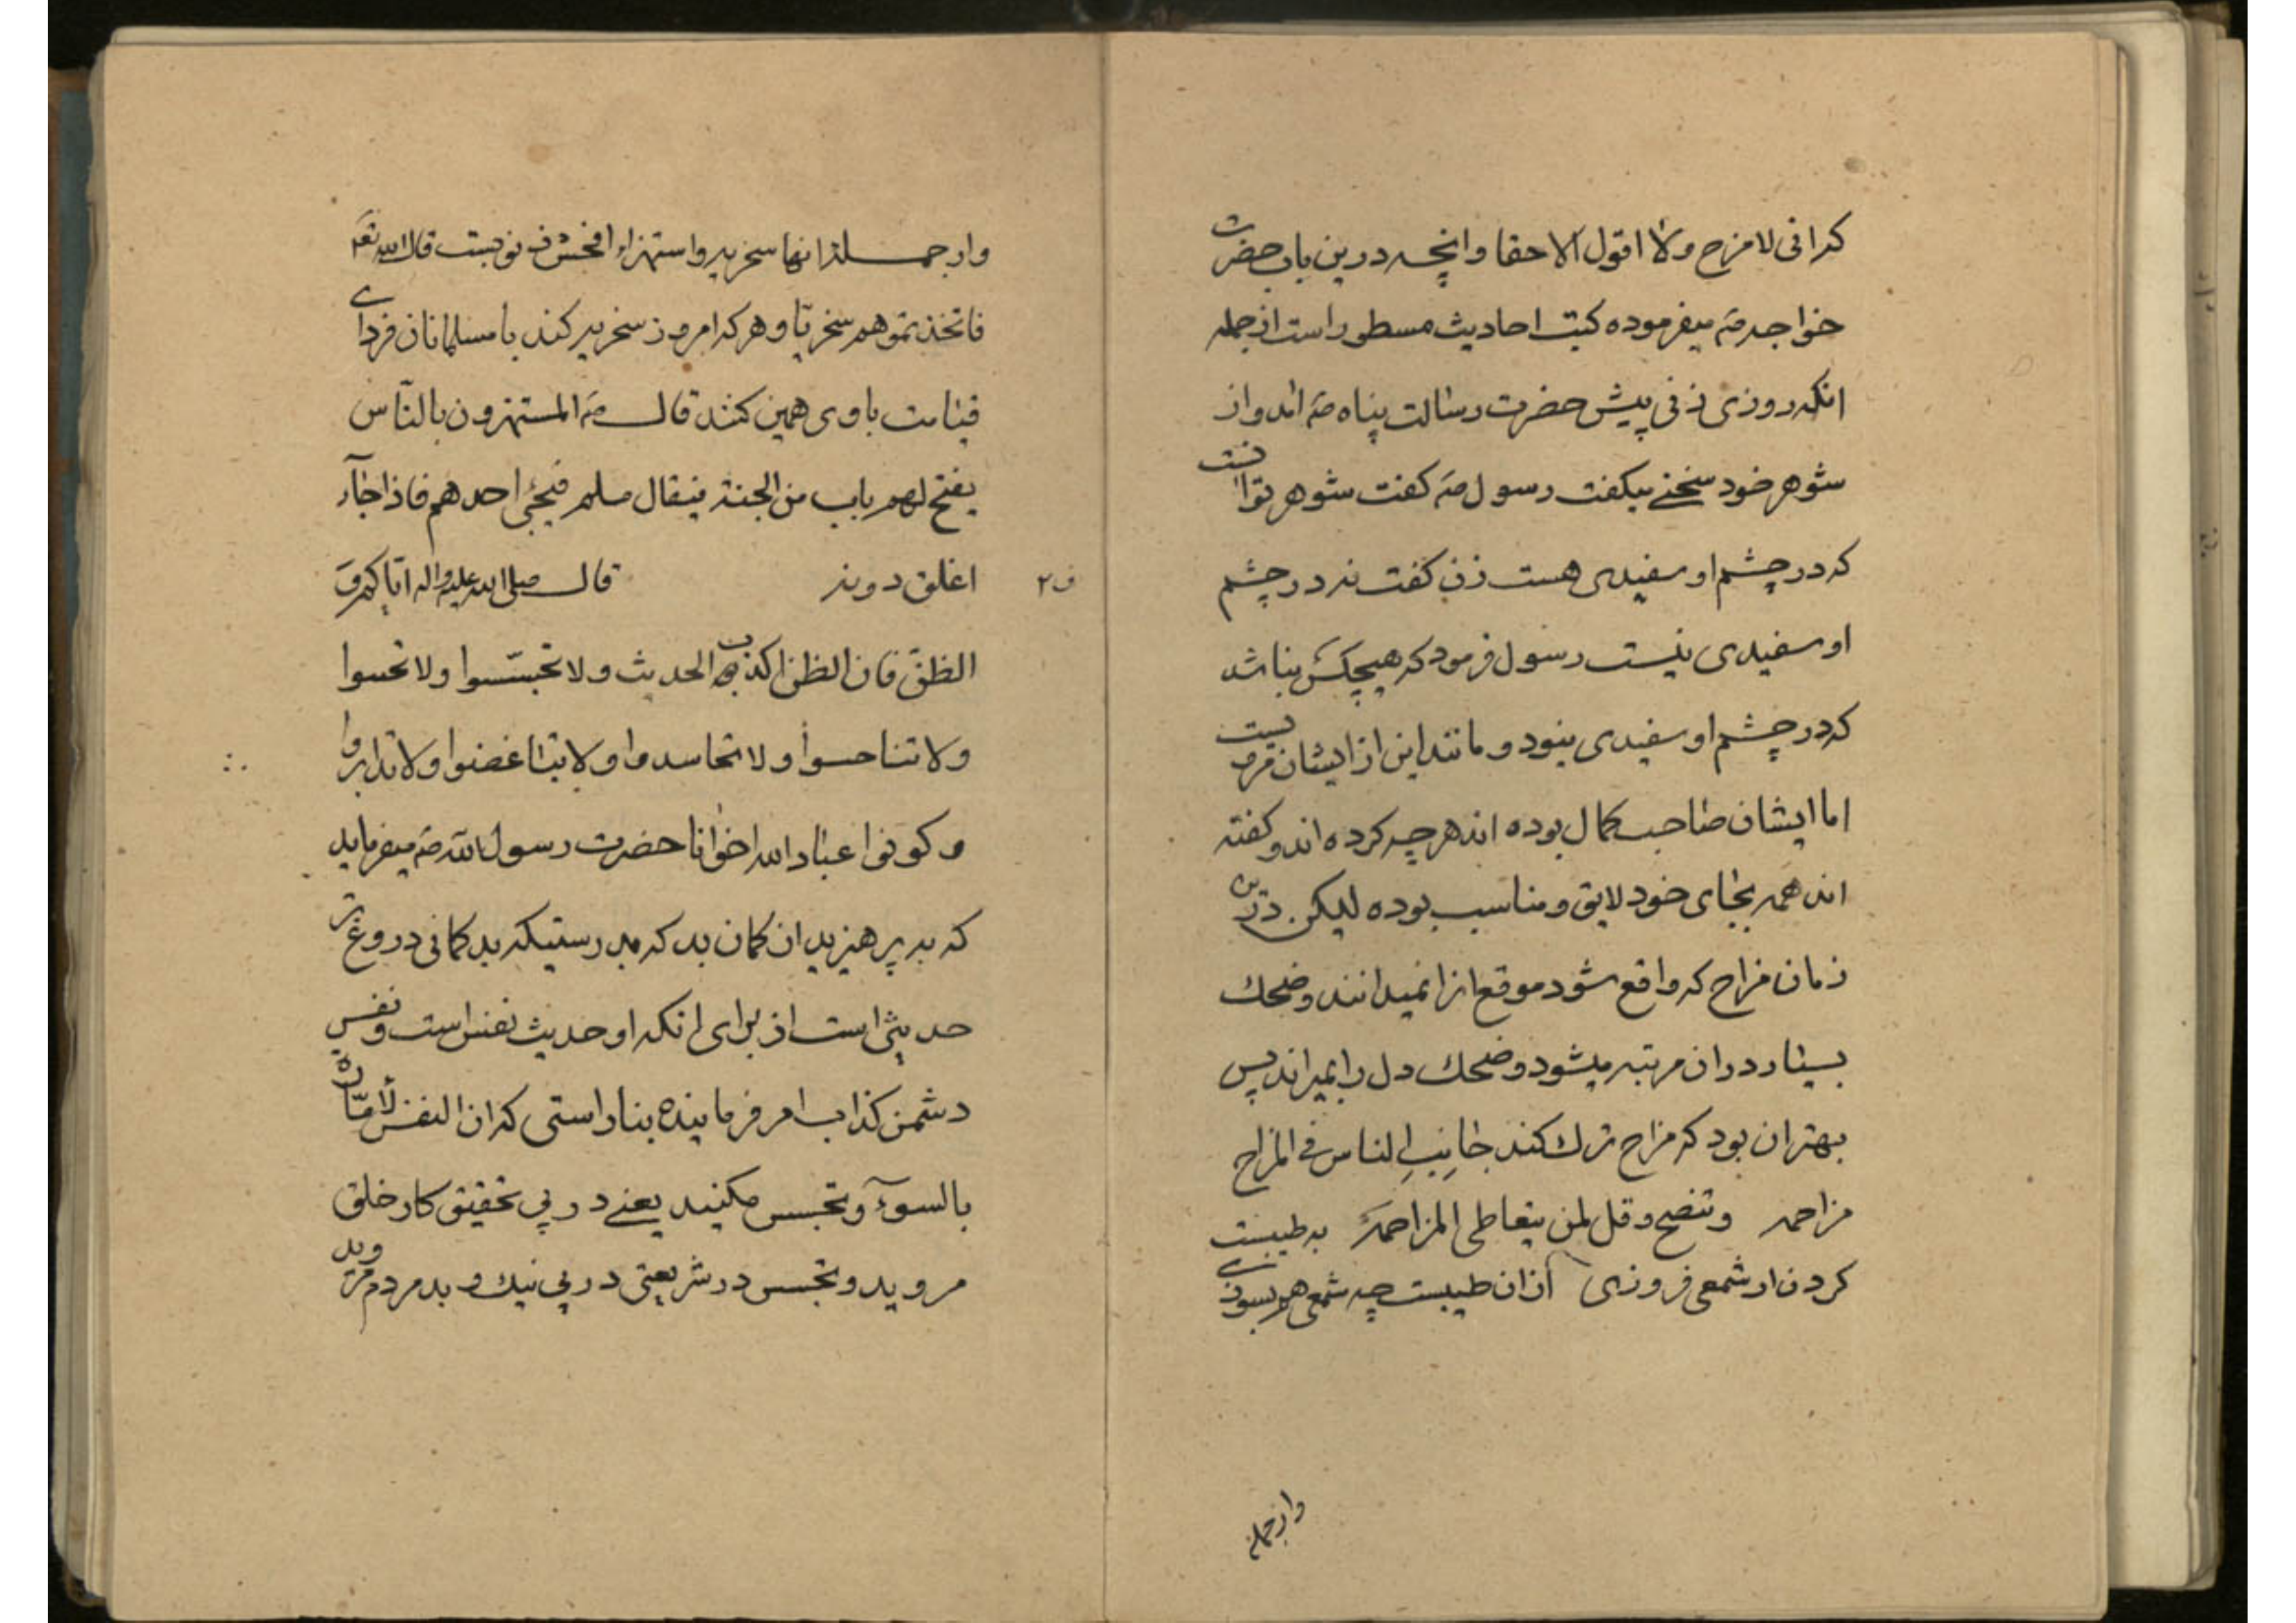 كه انى لامزح ولا اقول الا حقا وانچه درين باب حضرت
خواجه صَم ميفرموده كتب احاديث مسطور است از جمله
انكه روزى زنى پيش حضرت رسالت پناه صَم امد و از
شوهر خود سخنے ميكفت رسول صَم كفت شوهر تو انست
كه در چشم او سفيدى هست زن كفت نه در چشم
او سفيدى نيست رسول فرمود كه هيچكس نباشد
كه در چشم او سفيدى نبود و مانند اين از ايشان
اما ايشان صاحب كمال بوده اند هر چه كرده اند و كفته
اند همه بجاى خود لايق و مناسب بوده ليكن درين
زمان مزاح كه واقع شود موقع انرا نميدانند و ضحك
بسيار در ان مرتبه ميشود و ضحك دل را بميراند پس
بهتر ان بود كه مزاح ترك كند جانِبِ الناس فى المزاح
مزاحمه وتنصح وقل لمن يتعاطى المزاحمَة به طيبست
كردن ار شمعى فروزى از ان طيبست چه شمعى هم بسوزے
وازجمله
وازجمله انها سخريه و استهزاء افحش ف نوبست قال الله تعَم
فاتخذتموهم سخريّا و هر كه امروز سخريه كند با مسلمانان فرداے
قيامت با وى همين كنند قال صَم المستهزون بالنّاس
يفتح لهم باب من الجنة فيقال هلم فيجئ احدهم فاذا جآء
اغلق دونه قال صلى الله عليه واله اياكم وَ
ف۲
الظنّ فان الظن اكذب الحديث ولا تجسّسوا ولا تحسوا
ولا تناحسوا ولا تحاسدوا ولا تباغضوا ولا تدابروا
وكونوا عباد الله اخوانا حضرت رسول الله صَم ميفرمايد
كه به پرهيزيد ان كمان بد كه بدرستيكه بد كمانى دروغ تر
حديثى است از براى انكه او حديث نفس است و نفس
دشمن كذاب امر فرماينده بناراستى كه ان النفس لأمّارة
بالسوء و تجسس مكنيد يعنے در پى تحقيق كار خلق
مرويد و تجسس در شريعتى در پى نيك و بد مردم مرويد